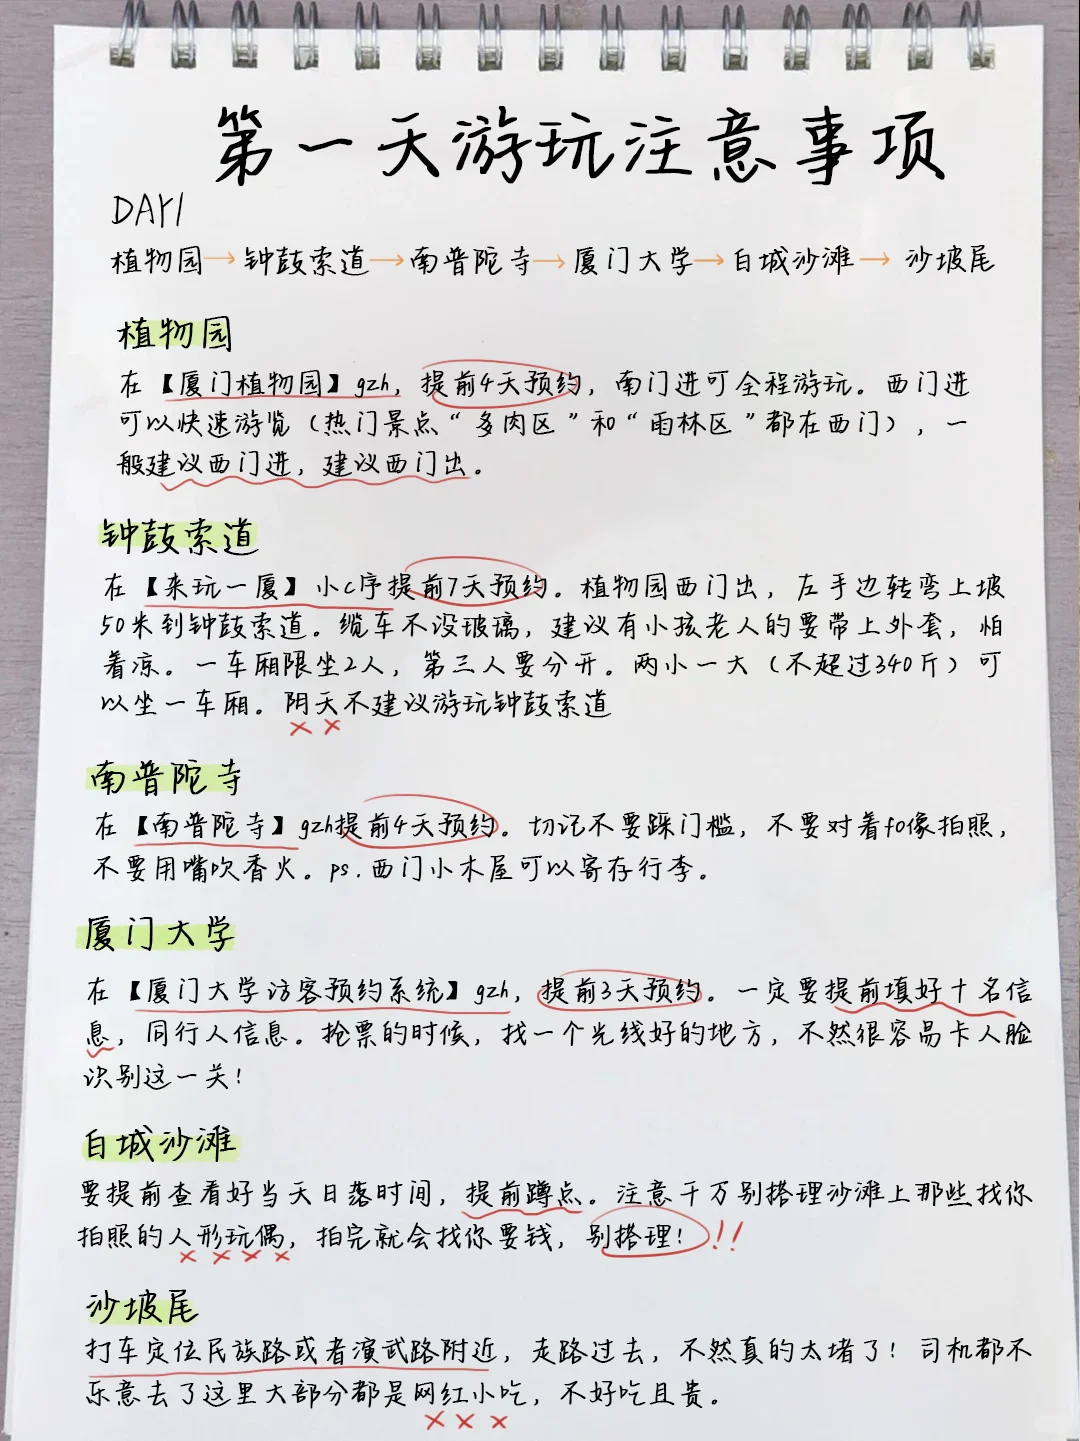 第一天游玩注意事项
DAY1
植物园→钟鼓索道→南普陀寺→厦门大学→白城沙滩→沙坡尾
植物园
在【厦门植物园】gzh，提前4天预约，南门进可全程游玩。西门进
可以快速游览（热门景点“多肉区”和“雨林区”都在西门），一
般建议西门进，建议西门出。
钟鼓索道
在【来玩一厦】小c序提前7天预约。植物园西门出，左手边转弯上坡
50米到钟鼓索道。缆车不没玻璃，建议有小孩老人的要带上外套，怕
着凉。一车厢限坐2人，第三人要分开。两小一大（不超过340斤）可
以坐一车厢。阴天不建议游玩钟鼓索道
南普陀寺
在【南普陀寺】gzh提前4天预约。切记不要踩门槛，不要对着fo像拍照，
不要用嘴吹香火。ps.西门小木屋可以寄存行李。
厦门大学
在【厦门大学访客预约系统】gzh，提前3天预约。一定要提前填好十名信
息，同行人信息。抢票的时候，找一个光线好的地方，不然很容易卡人脸
识别这一关！
白城沙滩
要提前查看好当天日落时间，提前蹲点。注意千万别搭理沙滩上那些找你
拍照的人形玩偶，拍完就会找你要钱，别搭理！!!
沙坡尾
打车定位民族路或者演武路附近，走路过去，不然真的太堵了！司机都不
乐意去了这里大部分都是网红小吃，不好吃且贵。